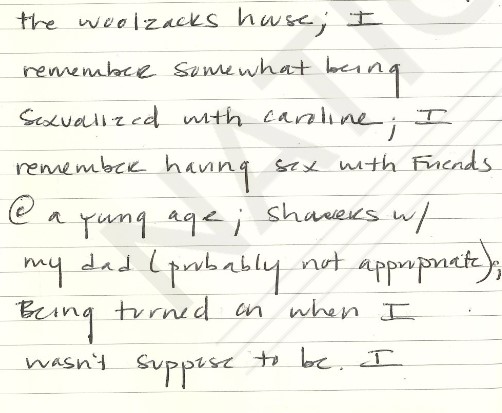 the woolzacks house; I
remember somewhat being
sexualized with caroline; I
remember having sex with friends
@ a yung age; showers w/
my dad (probably not appropriate);
Being turned on when I
wasn't suppose to be. I